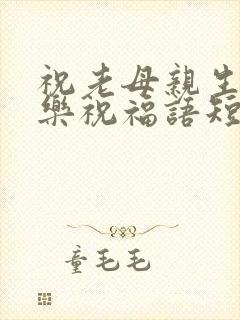 祝老母親生
樂祝福語短
童毛毛